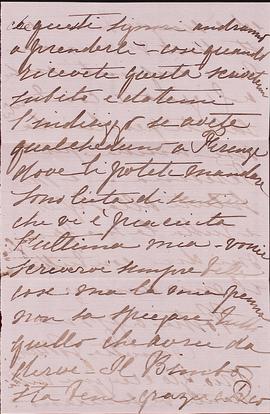 che questi signori andranno
a prenderle - così quando
ricevete questa scrivetemi
subito e datemi
l'indirizzo se avete
qualcheduno a Firenze
dove li potete mandare
sono lieta di sentire
che vi è piaciuta
l'ultima mia - vorrei
scrivervi sempre delle
cose ma la mia penna
non sa spiegare tutto
quello che avrei da
dirvi - Il Bimbo
sta bene grazie a Dio